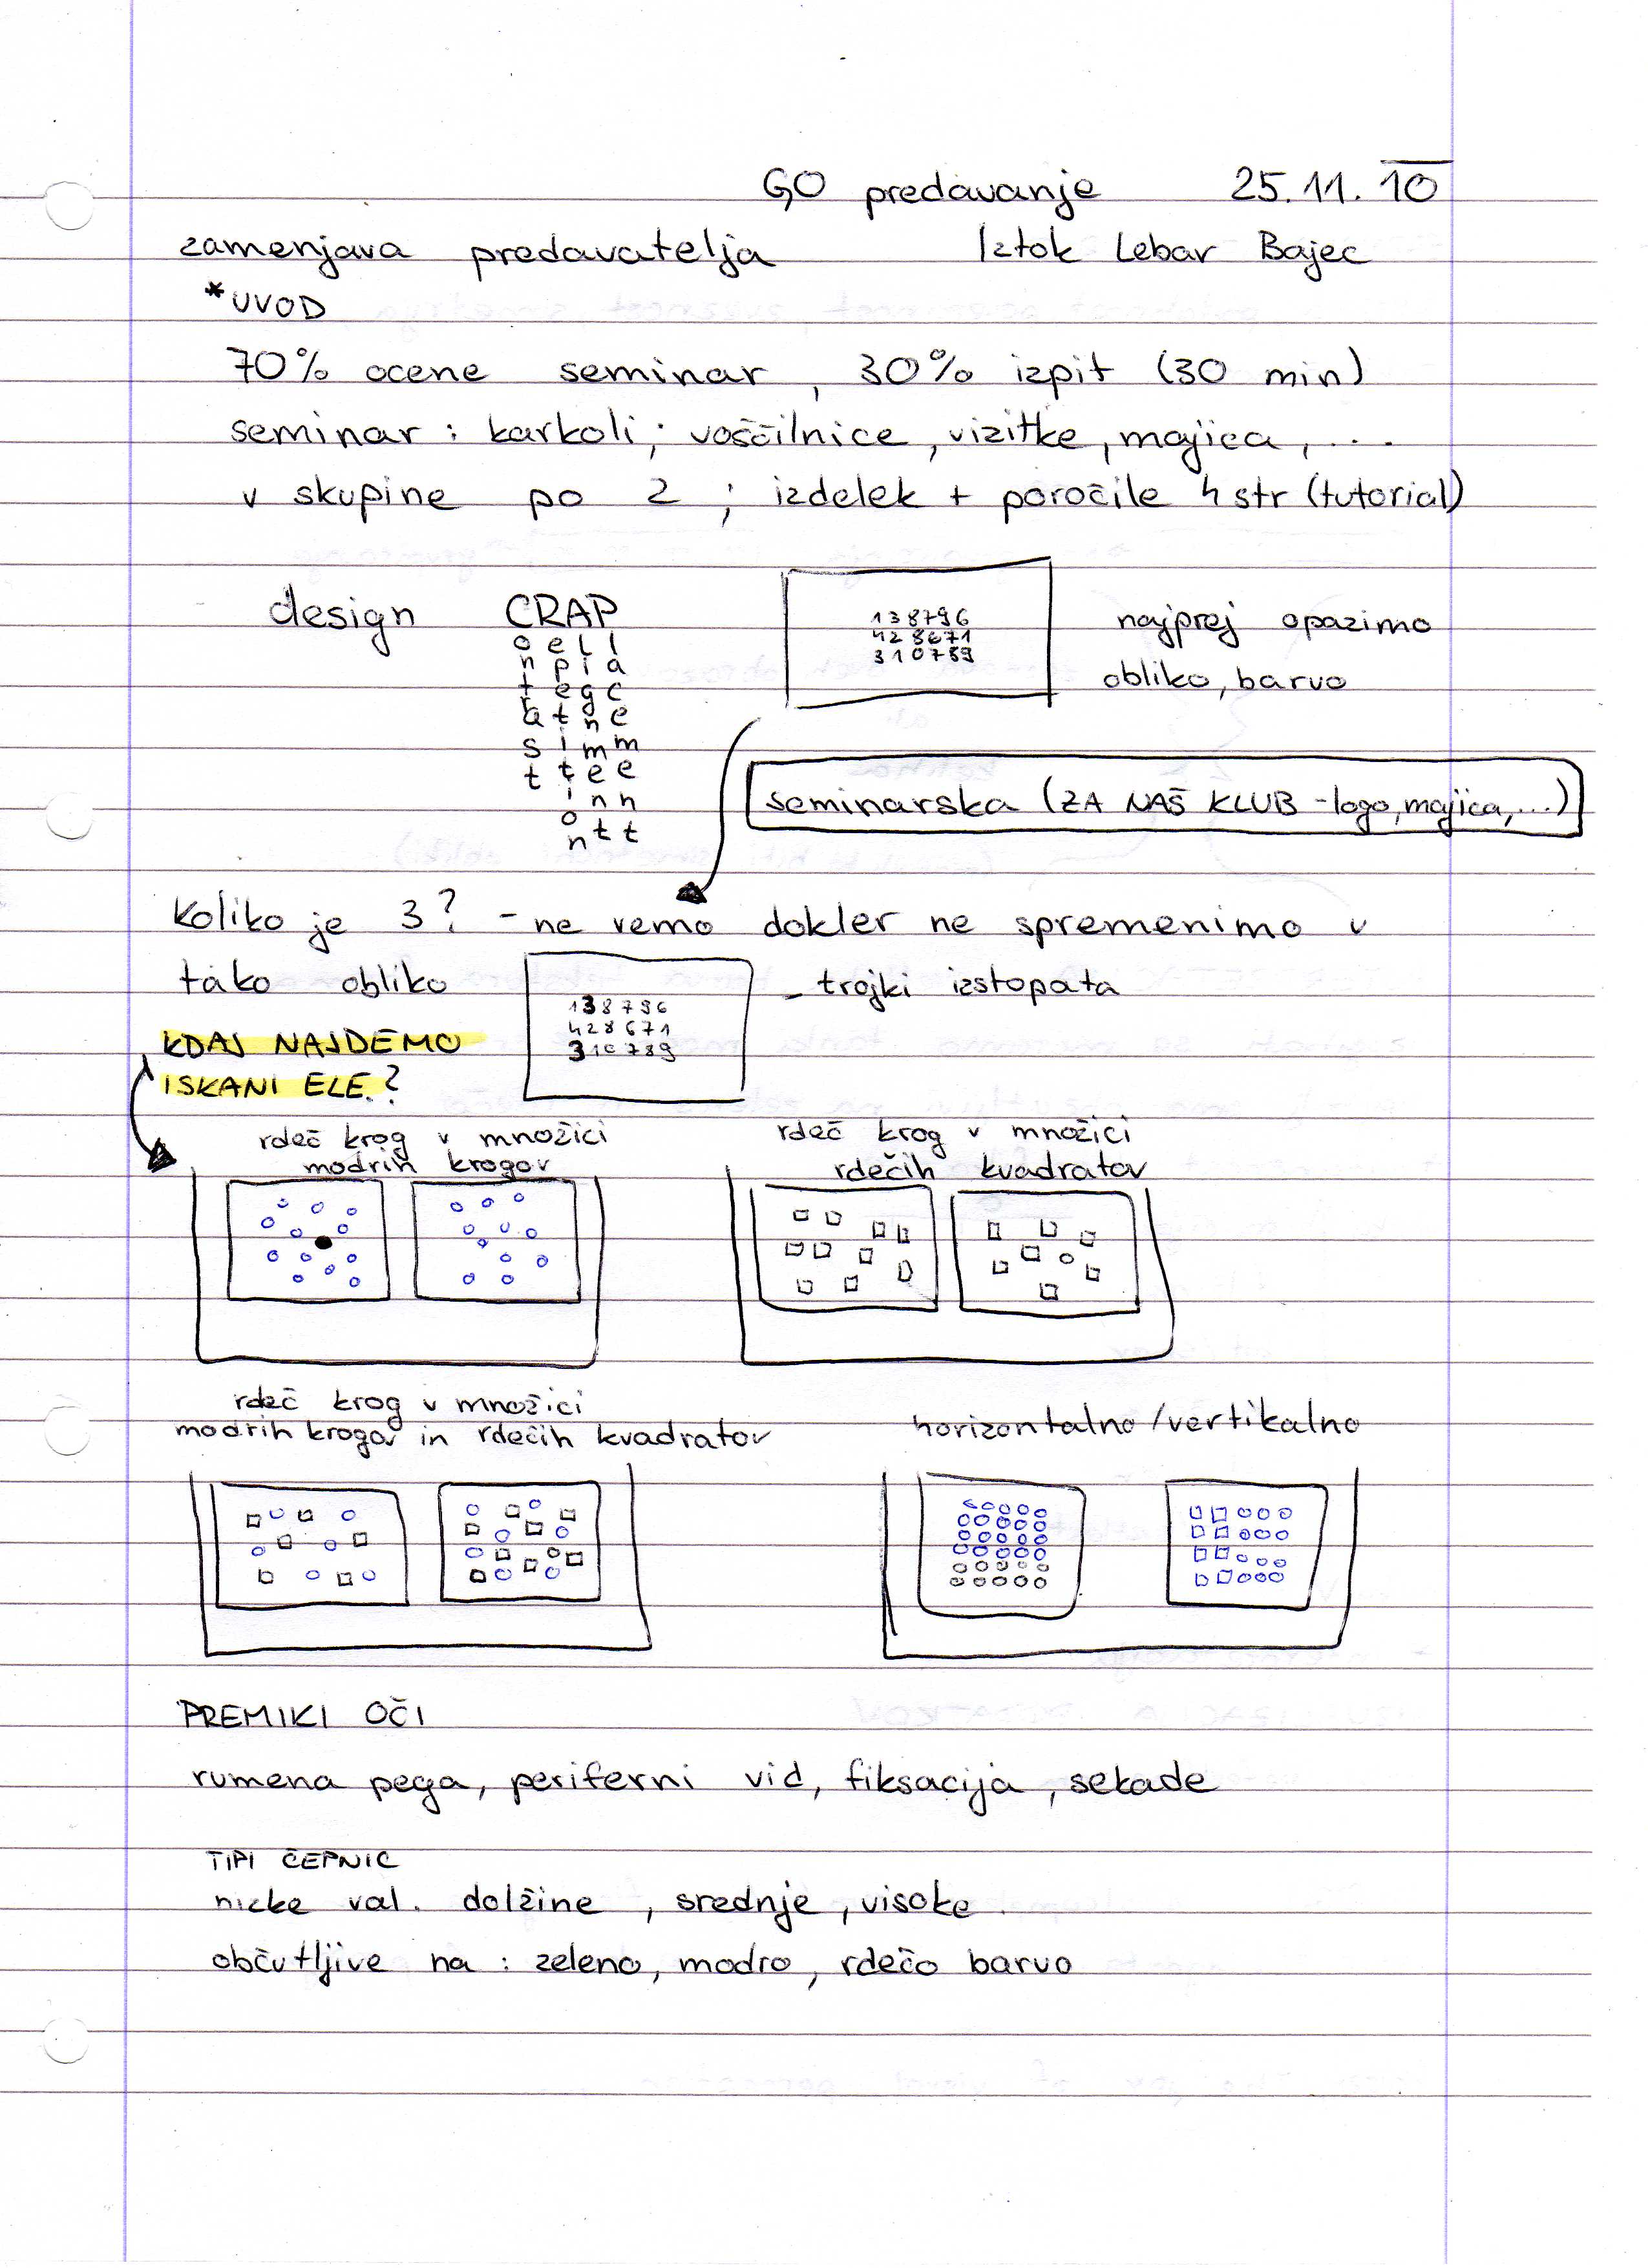 GO predavanje 25.11.10
zamenjava predavatelja Iztok Lebar Bajec
*UVOD
70% ocene seminar, 30% izpit (30 min)
seminar: karkoli; voščilnice, vizitke, majica, ...
v skupine po 2; izdelek + poročile 4 str (tutorial)
design CRAP
o e l l
n p i a
t e g c
r a t n e
s i m m
t t e e
i n n
o
n t t
138796
428671
310789
najprej opazimo
obliko, barvo
seminarska (ZA NAŠ KLUB - logo, majica, ...)
Koliko je 3? - ne vemo dokler ne spremenimo v
tako obliko
138796
428671
310789
- trojki izstopata
KDAJ NAJDEMO
ISKANI ELE.?
rdeč krog v množici
modrih krogov
rdeč krog v množici
rdečih kvadratov
rdeč krog v množici
modrih krogov in rdečih kvadratov
horizontalno/vertikalno
PREMIKI OČI
rumena pega, periferni vid, fiksacija, sekade
TIPI ČEPNIC
nizke val. dolžine, srednje, visoke
občutljive na: zeleno, modro, rdečo barvo